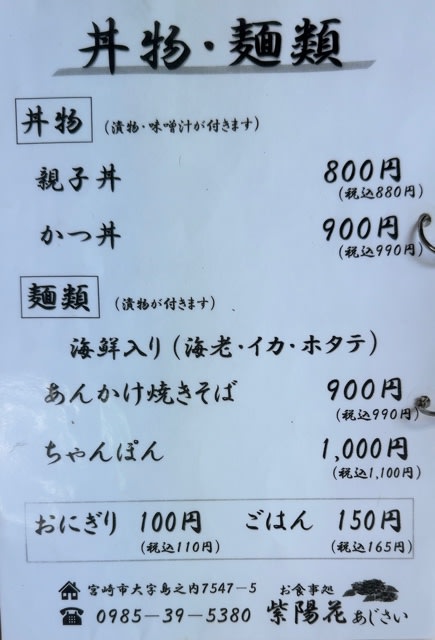 丼物・麺類
丼物 (漬物・味噌汁が付きます)
親子丼 800円
(税込880円)
かつ丼 900円
(税込990円)
麺類 (漬物が付きます)
海鮮入り(海老・イカ・ホタテ)
あんかけ焼きそば 900円
(税込990円)
ちゃんぽん 1,000円
(税込1,100円)
おにぎり 100円 ごはん 150円
(税込110円) (税込165円)
宮崎市大字島之内7547-5 お食事処
0985-39-5380 紫陽花 あじさい